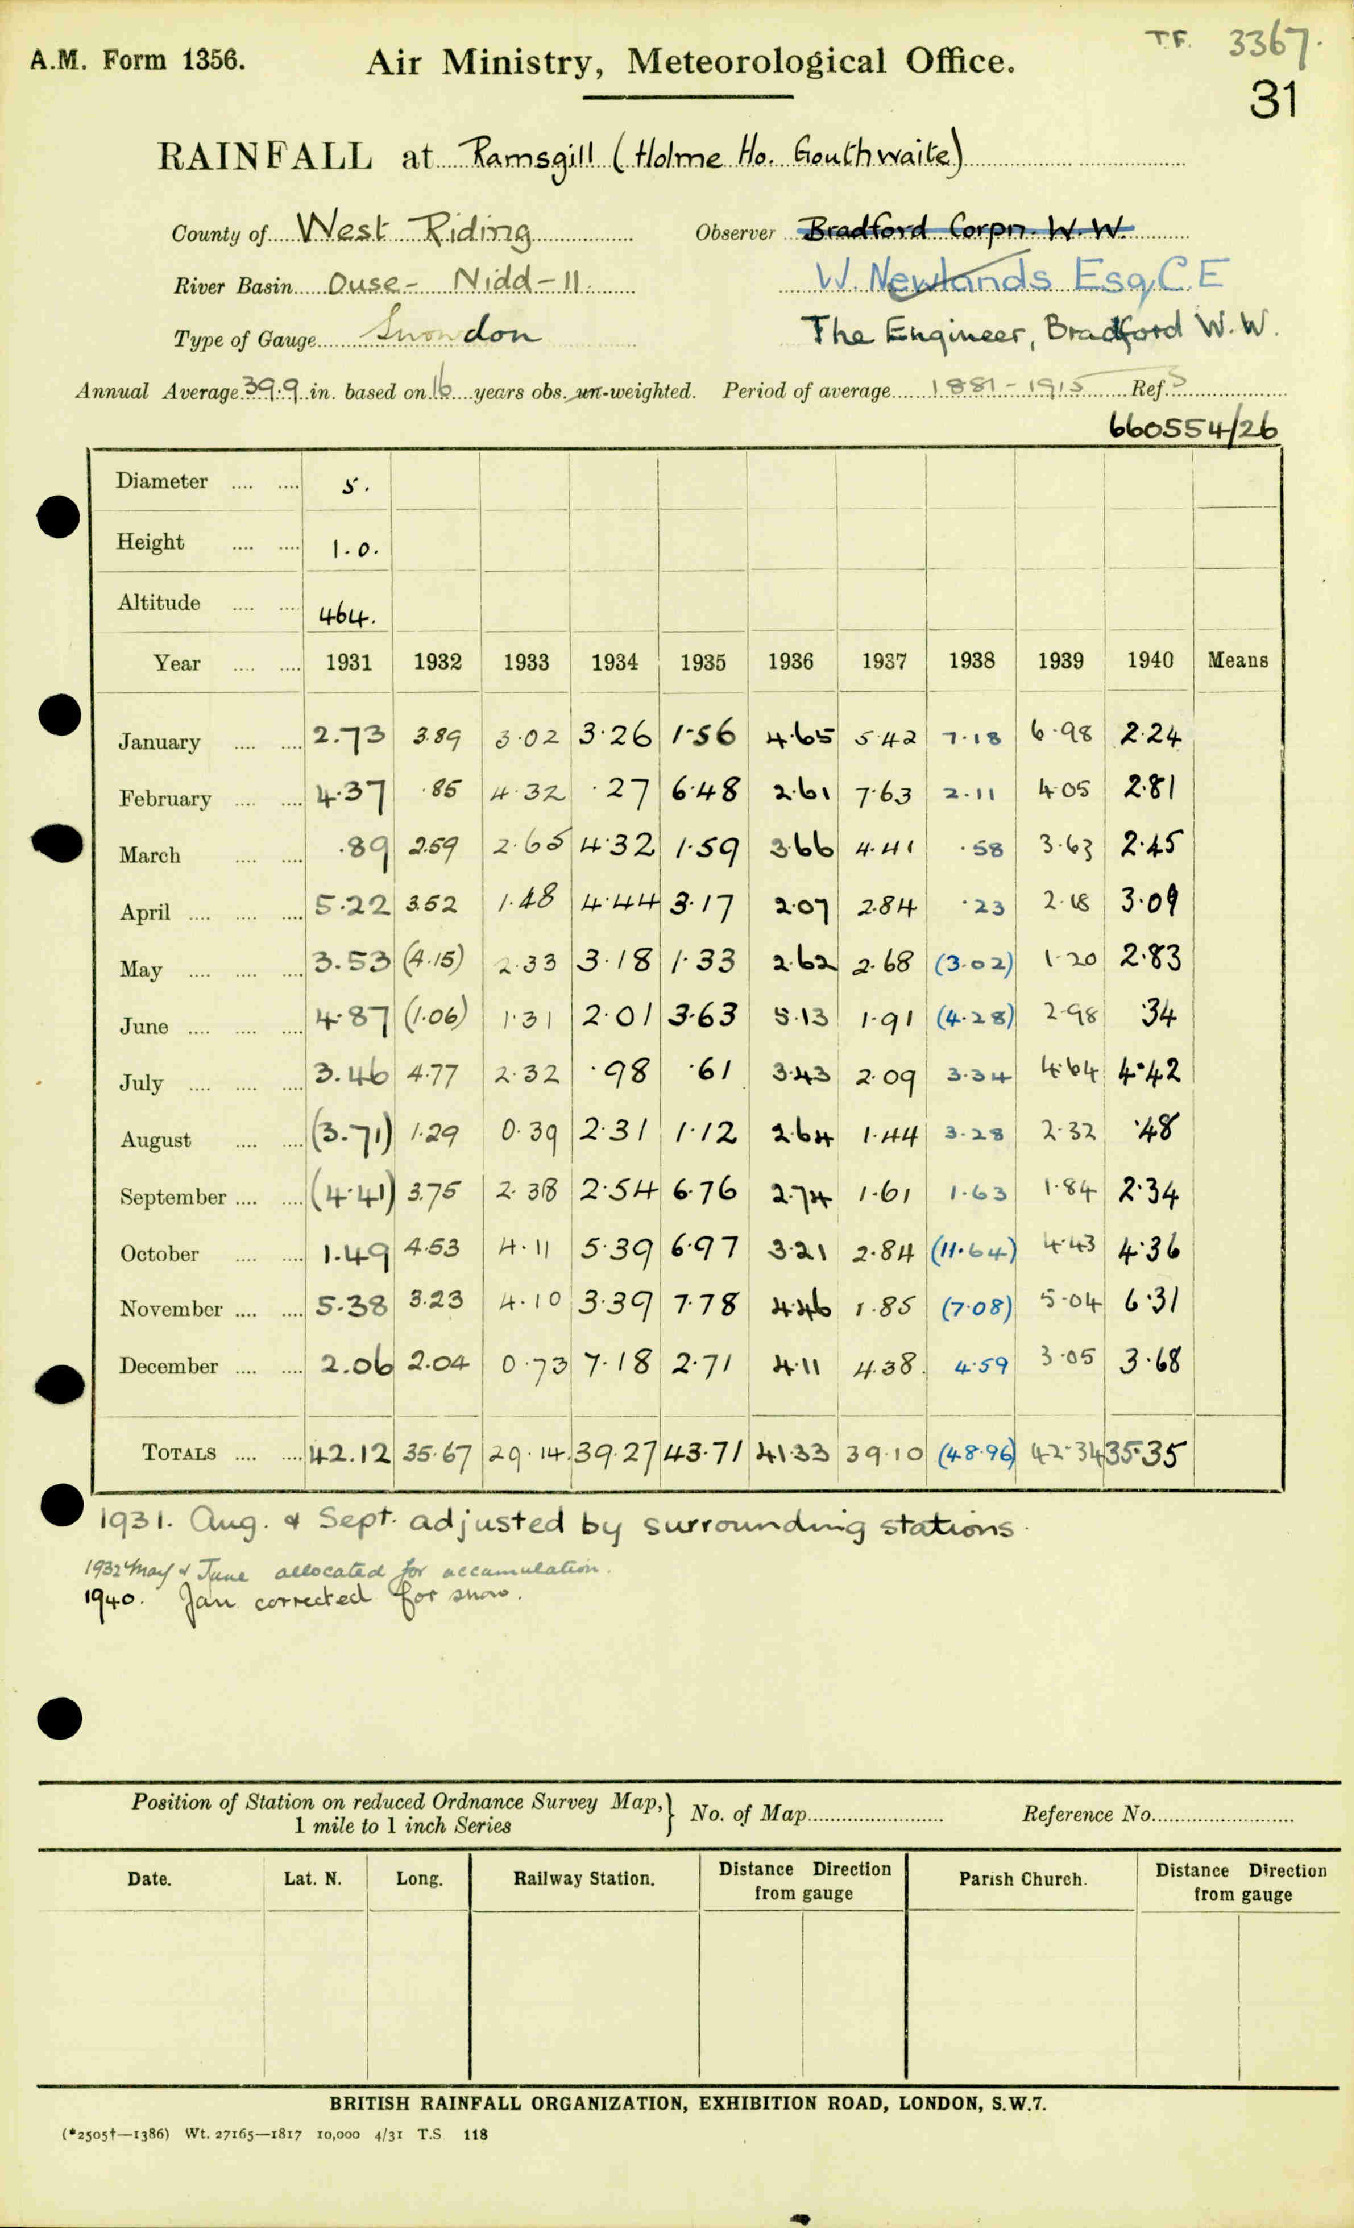 T.F. 3367.
A.M. Form 1356. Air Ministry, Meteorological Office.
31
RAINFALL at Ramsgill (Holme Ho. Gouthwaite)
County of West Riding Observer Bradford Corpn. W. W.
River Basin Ouse - Nidd - 11. W. Newlands Esq, C.E
Type of Gauge Snowdon The Engineer, Bradford W.W.
Annual Average 39.9 in. based on 16 years obs. un-weighted. Period of average 1881-1915 Ref. S
660554/26
Diameter .... .... 5.
Height .... .... 1.0.
Altitude .... .... 464.
Year .... .... 1931 1932 1933 1934 1935 1936 1937 1938 1939 1940 Means
January .... .... 2.73 3.89 3.02 3.26 1.56 4.65 5.42 7.18 6.98 2.24
February .... .... 4.37 .85 4.32 .27 6.48 2.61 7.63 2.11 4.05 2.81
March .... .... .89 2.59 2.65 4.32 1.59 3.66 4.41 .58 3.63 2.45
April .... .... .... 5.22 3.52 1.48 4.44 3.17 2.07 2.84 .23 2.18 3.09
May .... .... .... 3.53 (4.15) 2.33 3.18 1.33 2.62 2.68 (3.02) 1.20 2.83
June .... .... .... 4.87 (1.06) 1.31 2.01 3.63 5.13 1.91 (4.28) 2.98 .34
July .... .... .... 3.46 4.77 2.32 .98 .61 3.43 2.09 3.34 4.64 4.42
August .... .... (3.71) 1.29 0.39 2.31 1.12 2.64 1.44 3.28 2.32 .48
September .... .... (4.41) 3.75 2.38 2.54 6.76 2.74 1.61 1.63 1.84 2.34
October .... .... 1.49 4.53 4.11 5.39 6.97 3.21 2.84 (11.64) 4.43 4.36
November .... .... 5.38 3.23 4.10 3.39 7.78 4.46 1.85 (7.08) 5.04 6.31
December .... .... 2.06 2.04 0.73 7.18 2.71 4.11 4.38 4.59 3.05 3.68
TOTALS .... .... 42.12 35.67 29.14 39.27 43.71 41.33 39.10 (48.96) 42.34 35.35
1931. Aug. & Sept. adjusted by surrounding stations.
1932 May & June allocated for accumulation.
1940. Jan corrected for snow.
Position of Station on reduced Ordnance Survey Map, } No. of Map Reference No.
1 mile to 1 inch Series
Date. Lat. N. Long. Railway Station. Distance Direction from gauge Parish Church. Distance Direction from gauge
BRITISH RAINFALL ORGANIZATION, EXHIBITION ROAD, LONDON, S.W.7.
(*2505†—1386) Wt. 27165—1817 10,000 4/31 T.S. 118